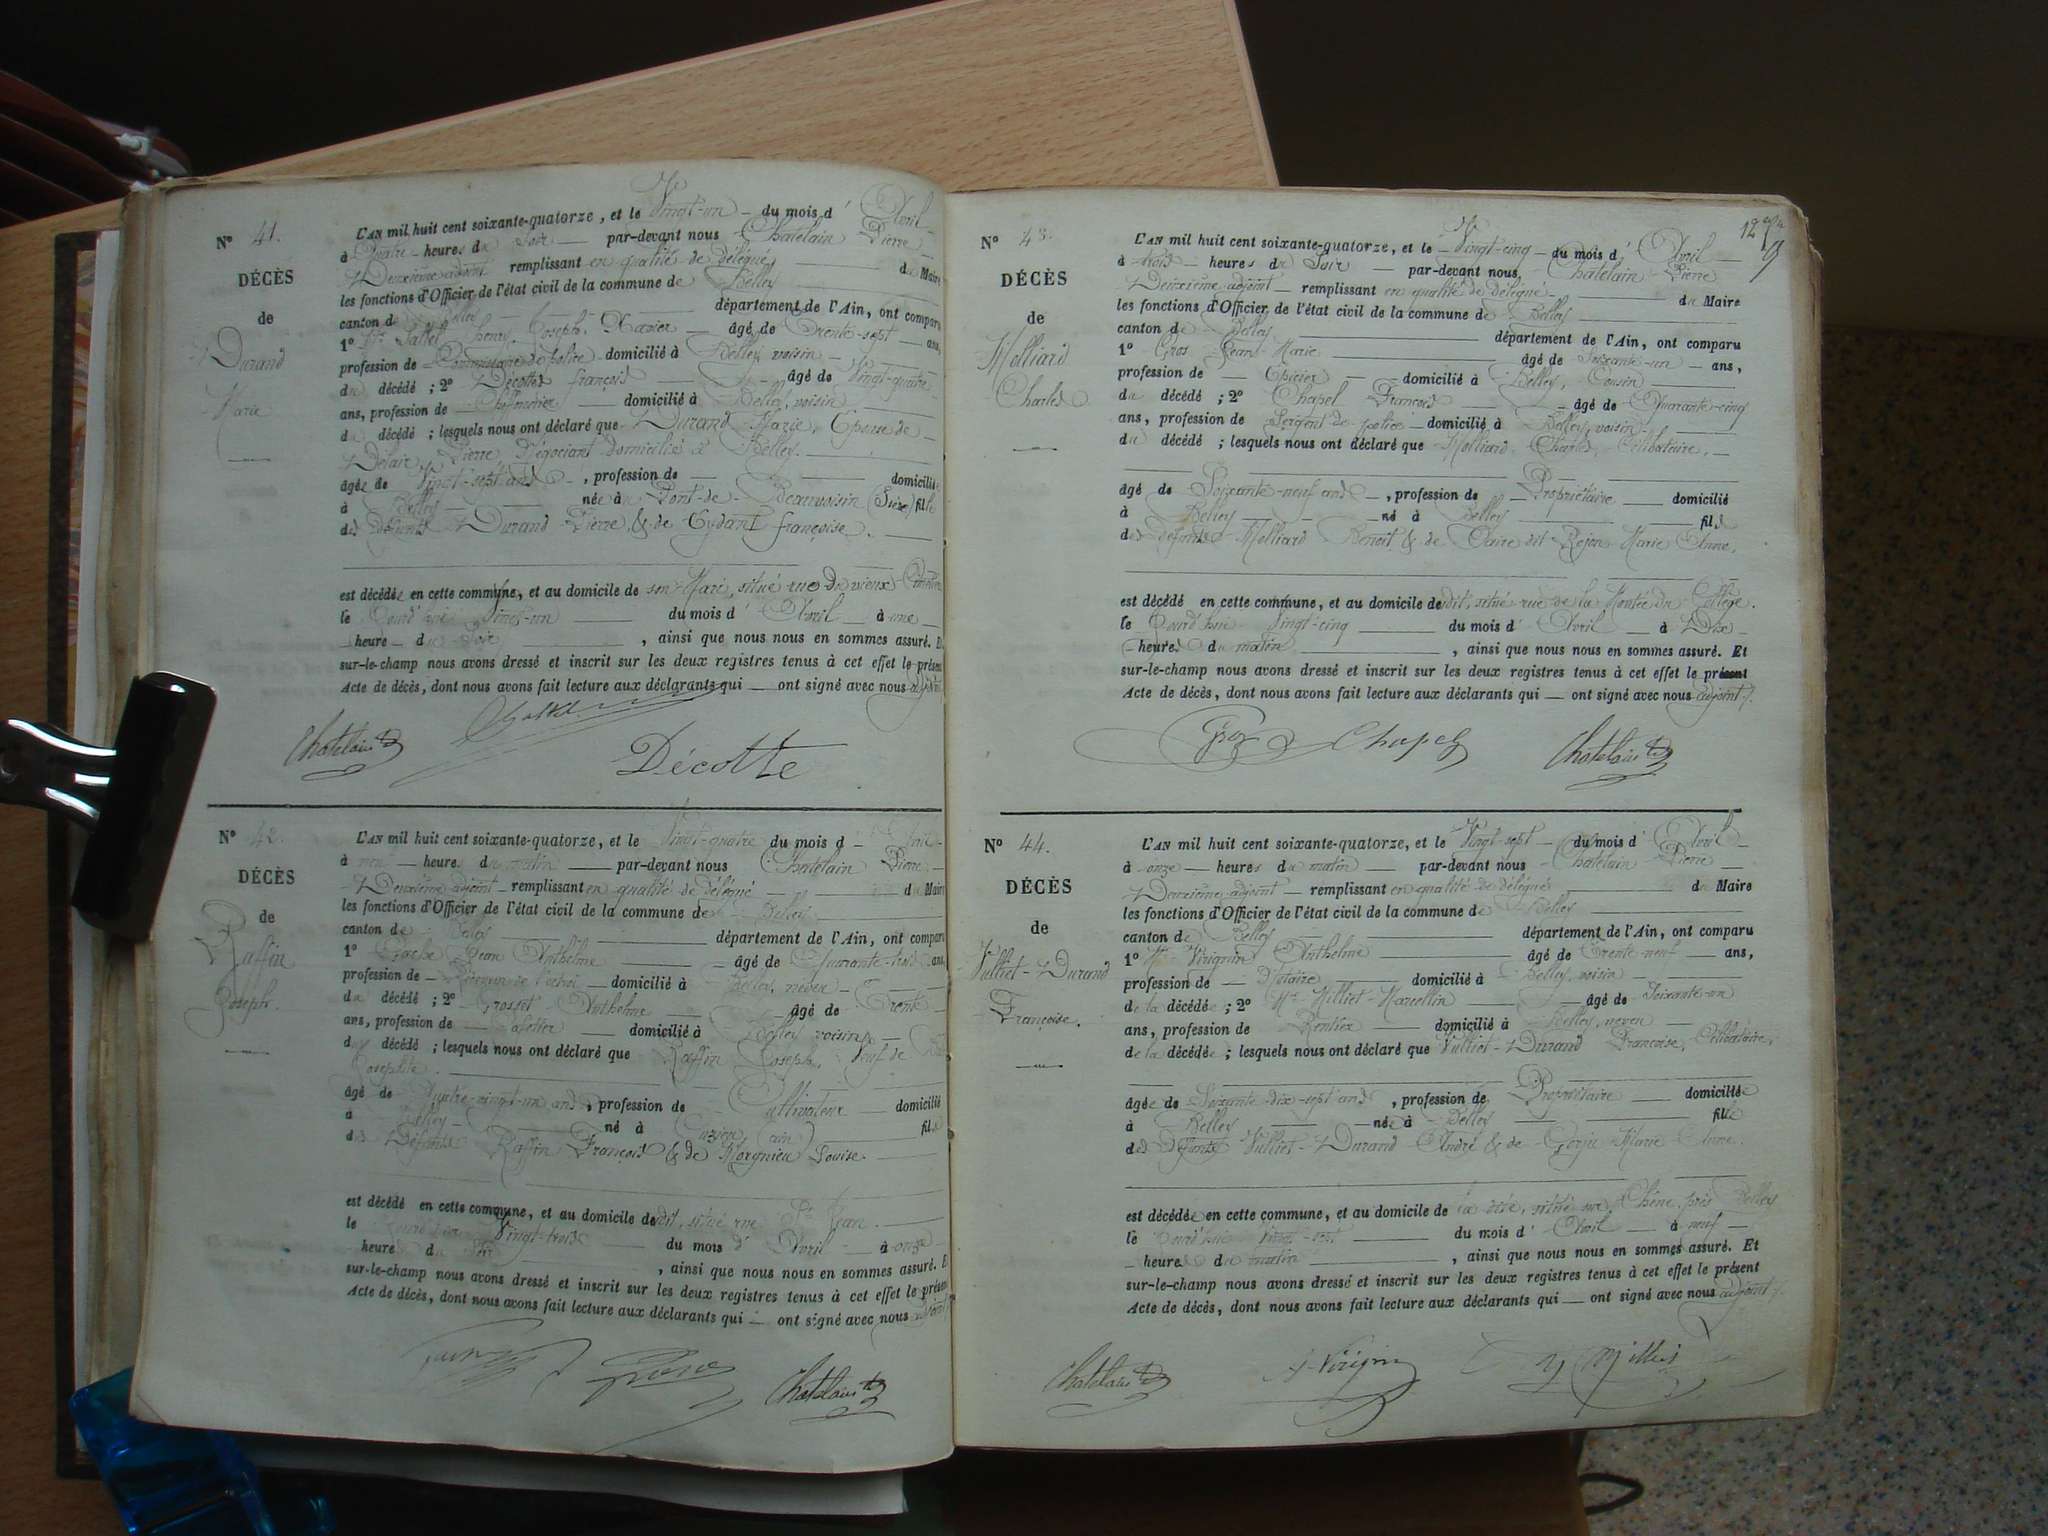 N° 41.
DÉCÈS
de
Durand
Marie
L'AN mil huit cent soixante-quatorze, et le Vingt-un du mois d'Avril
à Quatre heures du Soir par-devant nous Chatelain Pierre
Deuxième adjoint remplissant en qualité de délégué du Maire
les fonctions d'Officier de l'état civil de la commune de Belley
canton de Belley département de l'Ain, ont comparu
1° Henry Joseph Xavier âgé de Trente-sept ans,
profession de Commissaire de police domicilié à Belley, voisin
du décédé ; 2° Décotte François âgé de Vingt-quatre
ans, profession de domicilié à Belley, voisin
du décédé ; lesquels nous ont déclaré que Durand Marie, Epouse de
Pierre Négociant domicilié à Belley.
âgée de Vingt-sept ans, profession de domiciliée
à Belley née à Pont-de-Beauvoisin (Isère) fille
des défunts Durand Pierre, & de Françoise.
est décédée en cette commune, et au domicile de son Mari, situé rue du vieux
le jourd'hui Vingt-un du mois d'Avril à une
heure du Soir, ainsi que nous nous en sommes assuré. Et
sur-le-champ nous avons dressé et inscrit sur les deux registres tenus à cet effet le présent
Acte de décès, dont nous avons fait lecture aux déclarants qui ont signé avec nous adjoint
Chatelain
Décotte
N° 42.
DÉCÈS
de
Raffin
Joseph.
L'AN mil huit cent soixante-quatorze, et le Vingt-quatre du mois d'Avril
à neuf heures du matin par-devant nous Chatelain Pierre
Deuxième adjoint remplissant en qualité de délégué du Maire
les fonctions d'Officier de l'état civil de la commune de Belley
canton de Belley département de l'Ain, ont comparu
1° Jean Anthelme âgé de Quarante-trois ans,
profession de domicilié à Belley, neveu
du décédé ; 2° Grosset Anthelme âgé de Trente
ans, profession de domicilié à Belley voisin
du décédé ; lesquels nous ont déclaré que Raffin Joseph, Veuf de
Josephte.
âgé de Quatre-vingt-un ans, profession de Cultivateur domicilié
à Belley né à (ain) fils
des Défunts Raffin François & de Morgnieu Louise.
est décédé en cette commune, et au domicile dudit, situé rue St Jean.
le Vingt-trois du mois d'Avril à onze
heures du Soir, ainsi que nous nous en sommes assuré. Et
sur-le-champ nous avons dressé et inscrit sur les deux registres tenus à cet effet le présent
Acte de décès, dont nous avons fait lecture aux déclarants qui ont signé avec nous adjoint
Chatelain
N° 43.
DÉCÈS
de
Molliard
Charles
L'AN mil huit cent soixante-quatorze, et le Vingt-cinq du mois d'Avril
à trois heures du Soir par-devant nous, Chatelain Pierre
Deuxième adjoint remplissant en qualité de délégué du Maire
les fonctions d'Officier de l'état civil de la commune de Belley
canton de Belley département de l'Ain, ont comparu
1° Gros Jean Marie âgé de Soixante-un ans,
profession de Epicier domicilié à Belley, Cousin
du décédé ; 2° Chapel François âgé de Quarante-cinq
ans, profession de Sergent de police domicilié à Belley, voisin
du décédé ; lesquels nous ont déclaré que Molliard Charles, Célibataire,
âgé de Soixante-neuf ans, profession de Propriétaire domicilié
à Belley né à Belley fils
des défunts Molliard Benoit & de Claire dit Bejon Marie Anne.
est décédé en cette commune, et au domicile dudit, situé rue de la Montée du Collège.
le jourd'hui Vingt-cinq du mois d'Avril à Dix
heures du matin, ainsi que nous nous en sommes assuré. Et
sur-le-champ nous avons dressé et inscrit sur les deux registres tenus à cet effet le présent
Acte de décès, dont nous avons fait lecture aux déclarants qui ont signé avec nous adjoint.
Gros Chapel Chatelain
N° 44.
DÉCÈS
de
Vulliet-Durand
Françoise.
L'AN mil huit cent soixante-quatorze, et le Vingt-sept du mois d'Avril
à onze heures du matin par-devant nous Chatelain Pierre
Deuxième adjoint remplissant en qualité de délégué du Maire
les fonctions d'Officier de l'état civil de la commune de Belley
canton de Belley département de l'Ain, ont comparu
1° Mr Virignin Anthelme âgé de Trente-neuf ans,
profession de Notaire domicilié à Belley, voisin
de la décédée ; 2° Mr Milliet Marcellin âgé de Soixante-un
ans, profession de Rentier domicilié à Belley, neveu
de la décédée ; lesquels nous ont déclaré que Vulliet-Durand Françoise, Célibataire,
âgée de Soixante dix-sept ans, profession de Propriétaire domiciliée
à Belley née à Belley fille
des Défunts Vulliet-Durand André & de Gorju Marie Anne.
est décédée en cette commune, et au domicile de la dite, situé au Chêne, près Belley
le jourd'hui Vingt-sept du mois d'Avril à neuf
heures du matin, ainsi que nous nous en sommes assuré. Et
sur-le-champ nous avons dressé et inscrit sur les deux registres tenus à cet effet le présent
Acte de décès, dont nous avons fait lecture aux déclarants qui ont signé avec nous adjoint.
Chatelain Virignin Milliet